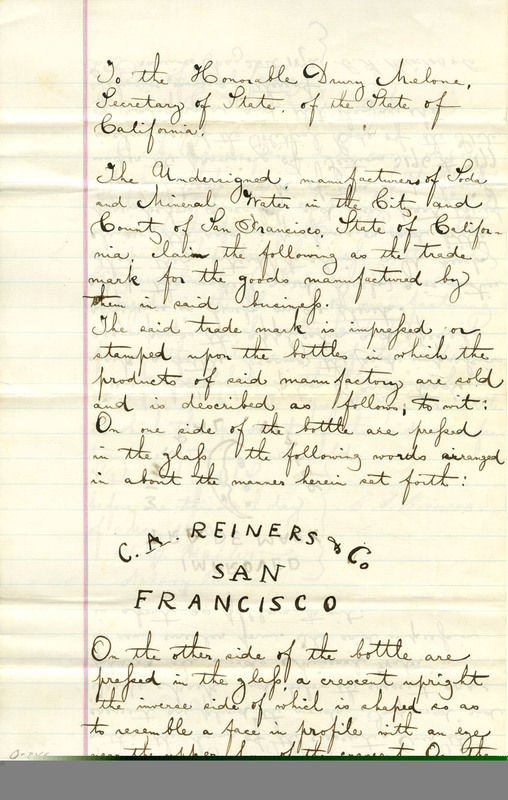 To the Honorable Drury Melone,
Secretary of State, of the State of
California.
The Undersigned, manufacturers of Soda
and Mineral Water in the City and
County of San Francisco, State of Califor-
nia, claim the following as the trade
mark for the goods manufactured by
them in said business.
The said trade mark is impressed or
stamped upon the bottles in which the
products of said manufactory are sold
and is described as follows, to wit:
On one side of the bottle are pressed
in the glass the following words arranged
in about the manner herein set forth:
C. A. REINERS & Co
SAN
FRANCISCO
On the other side of the bottle are
pressed in the glass, a crescent upright
the inverse side of which is shaped so as
to resemble a face in profile with an eye
near the upper of the crescent. On the